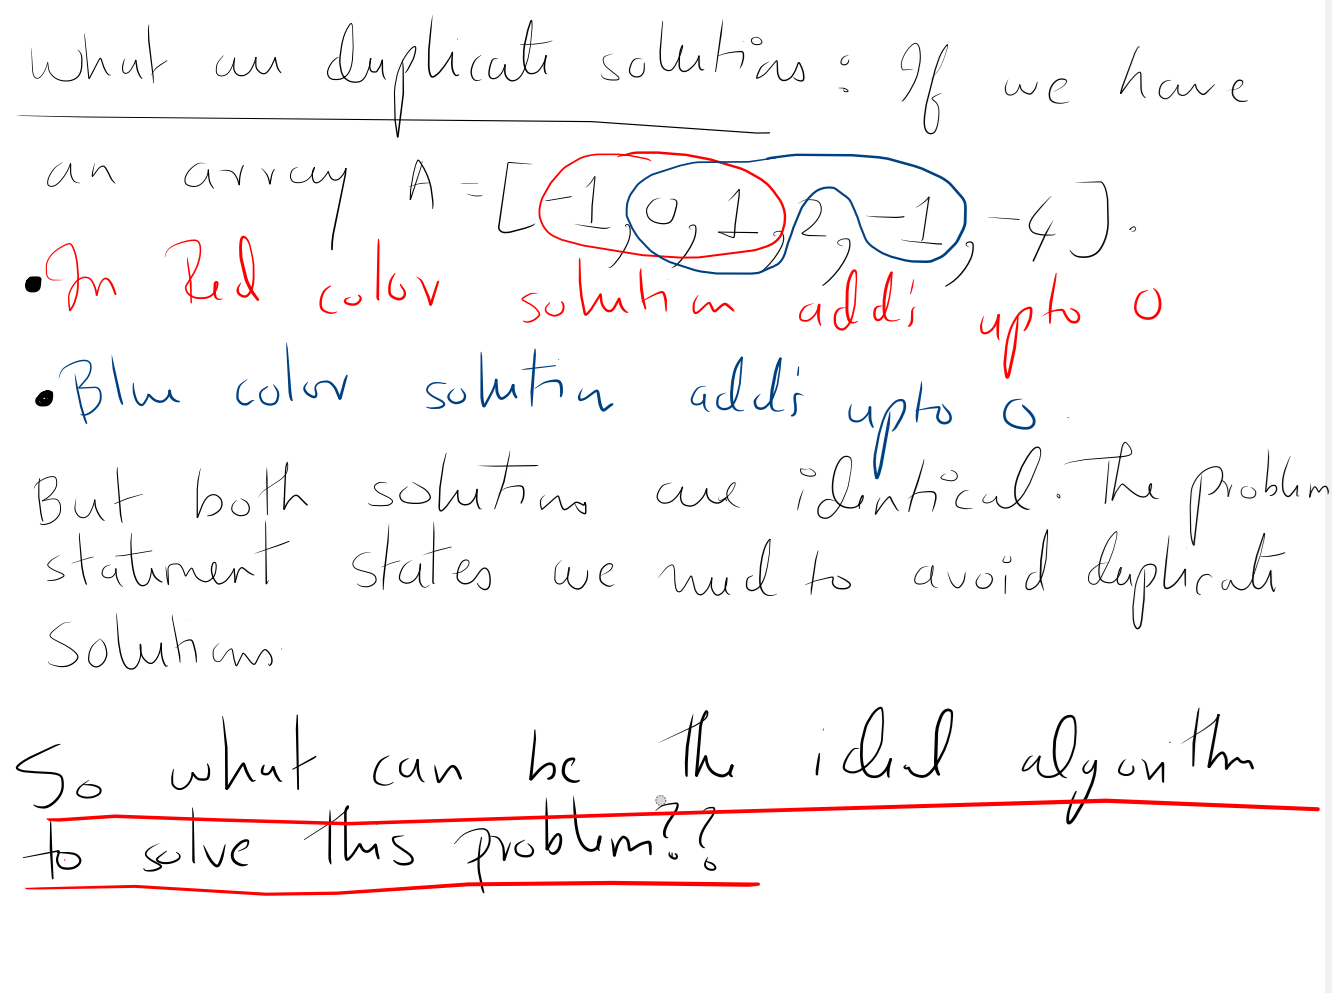 What are duplicate solutions: If we have
an array A = [-1, 0, 1, 2, -1, -4].
• In Red color solution adds upto 0
• Blue color solution adds upto 0.
But both solutions are identical. The problem
statement states we need to avoid duplicate
solutions.
So what can be the ideal algorithm
to solve this problem??